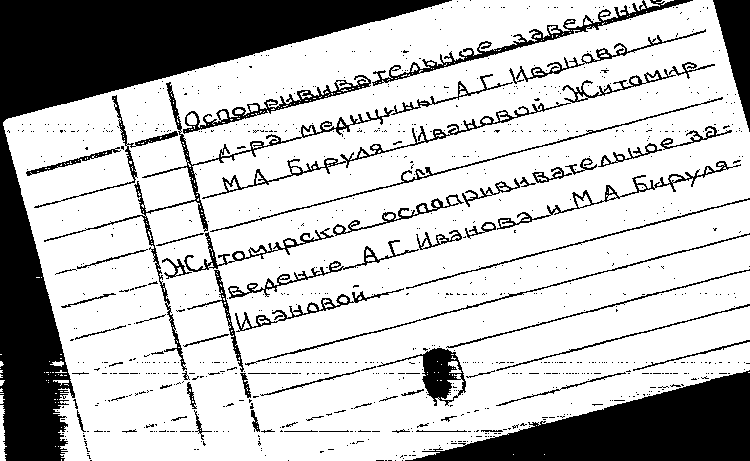 Оспопрививательное заведение
д-ра медицины А.Г. Иванова и
М А Бируля-Ивановой. Житомир
см
Житомирское оспопрививательное за-
ведение А.Г. Иванова и М А Бируля-
Ивановой.